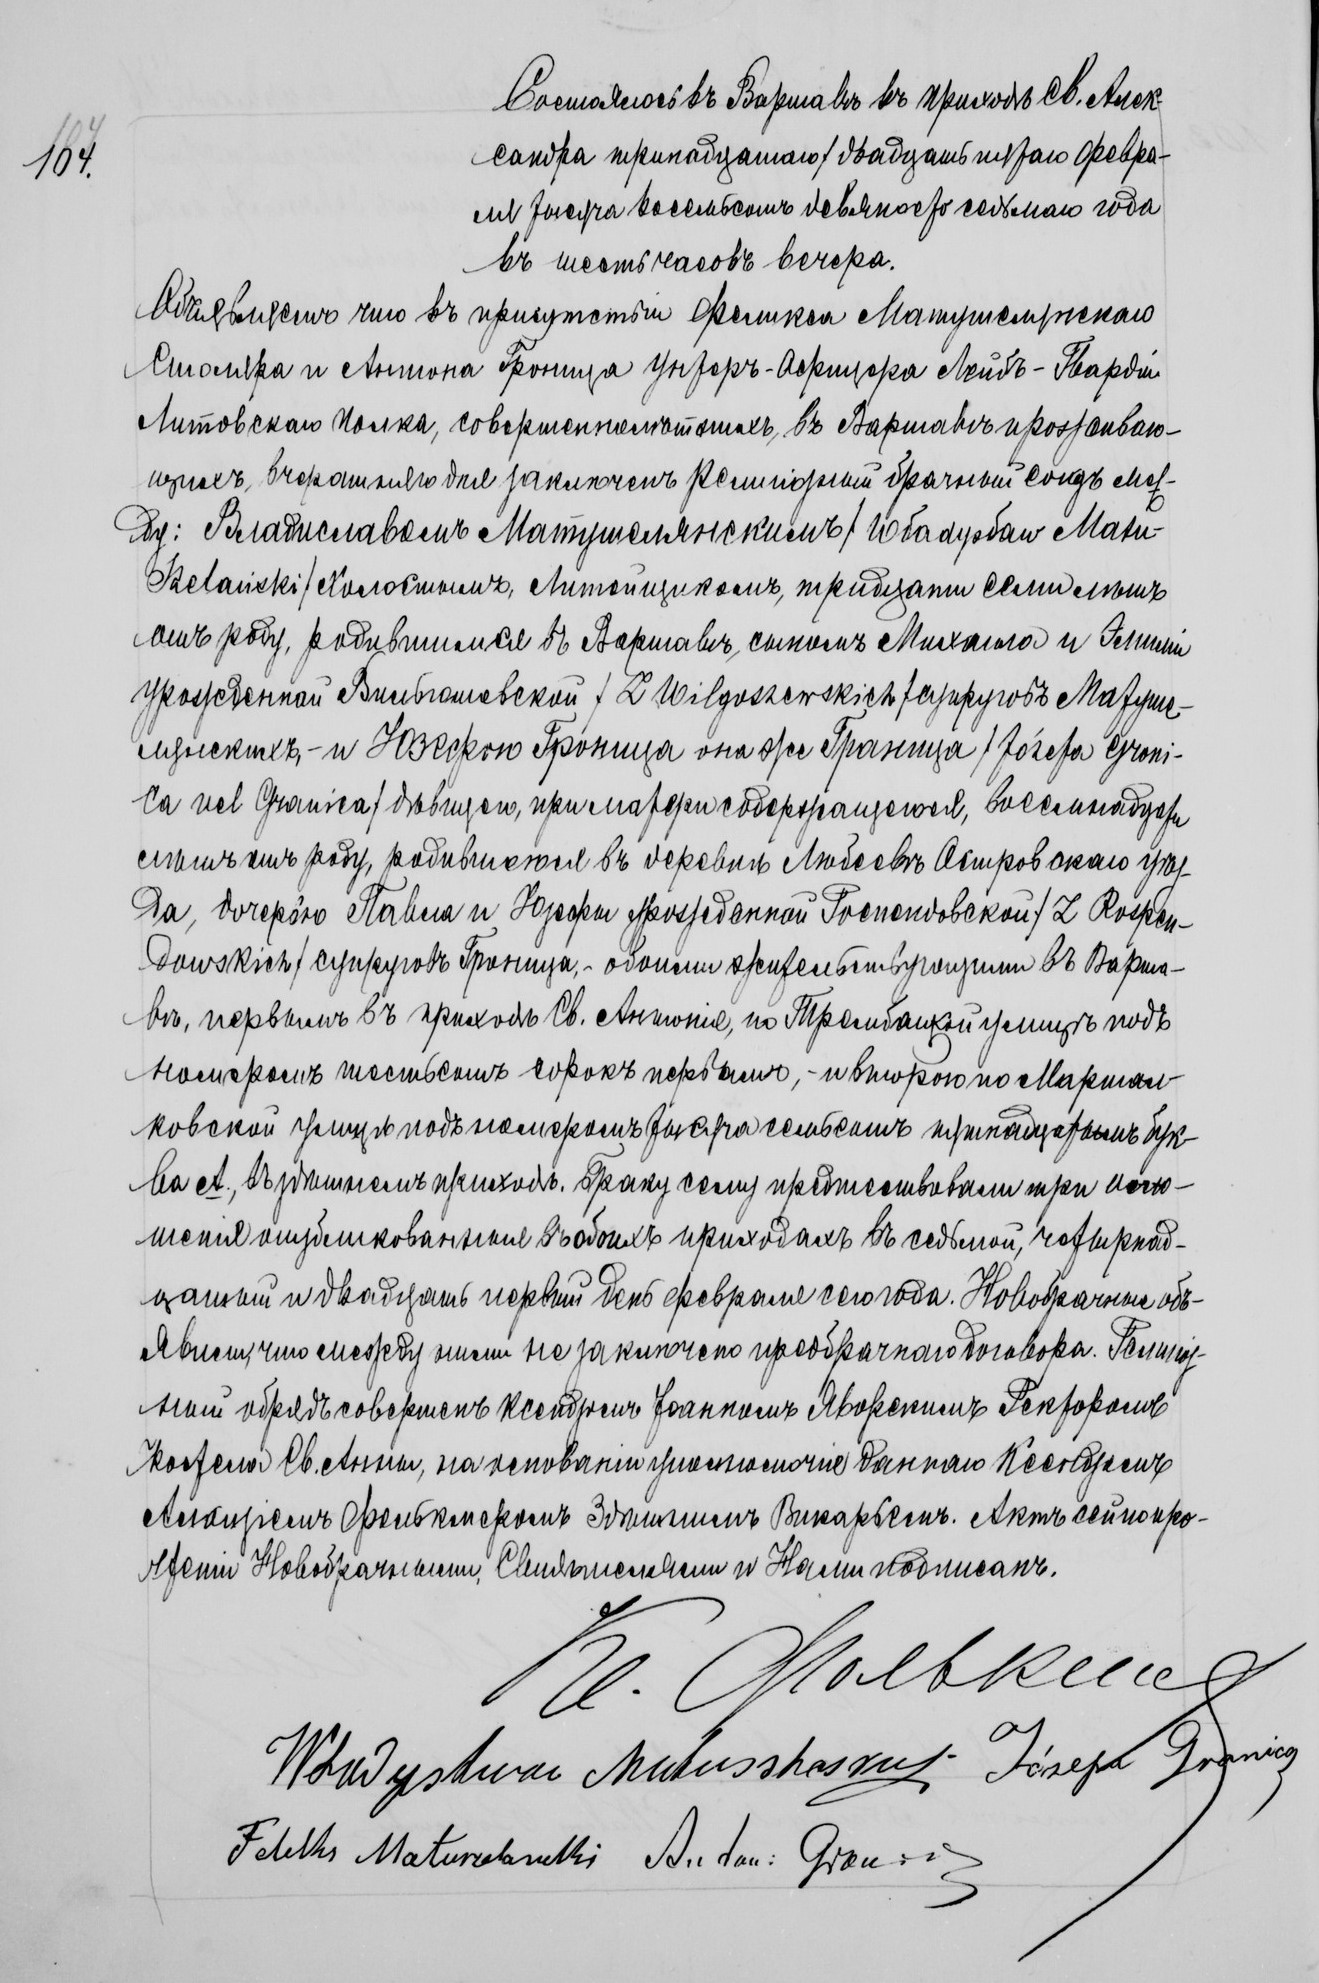 164.
Состоялось въ Варшавѣ въ приходѣ Св. Алек-
сандра тринадцатаго / двадцать пятаго февра-
ля тысяча восемьсотъ девяносто седьмаго года
въ шесть часовъ вечера.
Объявляемъ что въ присутствіи Феликса Матушелянскаго
Столяра и Антона Гроница Унтеръ-Офицера Лейбъ-Гвардіи
Литовскаго полка, совершеннолѣтнихъ, въ Варшавѣ проживаю-
щихъ, вчерашняго дня заключенъ религіозный брачный союзъ меж-
ду: Владиславомъ Матушелянскимъ / Władysław Matu-
szelański / холостымъ, Литейщикомъ, тридцати семи лѣтъ
отъ роду, родившимся въ Варшавѣ, сыномъ Михаила и Эмиліи
урожденной Вильгошевской / Z Wilgoszewskich / супруговъ Матуше-
лянскихъ, - и Юзефою Гроница она же Граница / Józefa Groni-
ca vel Granica / дѣвицею, при матери содержащеюся, восемнадцати
лѣтъ отъ роду, родившеюся въ деревнѣ Любеевѣ Островскаго уѣз-
да, дочерью Павла и Юзефы урожденной Госпендовской / Z Rospen-
dowskich / супруговъ Гроница, - обоими жительствующими въ Варша-
вѣ, первымъ въ приходѣ Св. Антонія, по Трембацкой улицѣ подъ
номеромъ шестьсотъ сорокъ первымъ, - и второю по Маршал-
ковской улицѣ подъ номеромъ тысяча семьсотъ пятнадцатымъ бук-
ва А., въ здѣшнемъ приходѣ. Браку сему предшествовали три огло-
шенія опубликованныя въ обоихъ приходахъ въ седьмой, четырнад-
цатый и двадцать первый день февраля сего года. Новобрачные объ-
явили, что между ними не заключено предбрачнаго договора. Религіоз-
ный обрядъ совершенъ Ксендзомъ Іоанномъ Яворскимъ Ректоромъ
Костела Св. Анны, на основаніи уполномочія даннаго Ксендзомъ
Алоизіемъ Фолькмеромъ Здѣшнимъ Викарьемъ. Актъ сей по про-
чтеніи Новобрачными, Свидѣтелями и Нами подписанъ.
Кс. Фолькмер
Władysław Matuszelański Józefa Granica
Feliks Matuszelanski Antoni Gronica